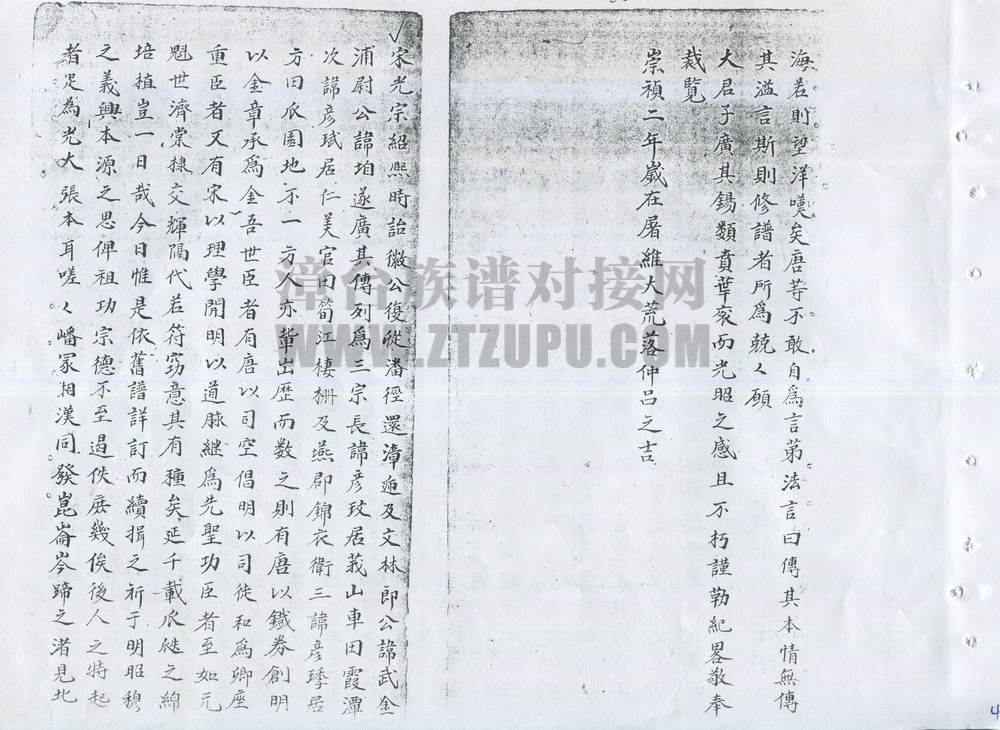 宋光宗紹熙時詒徽公復從潘徑還漳迤及文林郎公諱武金
浦尉公諱垍遂廣其傳列為三宗長諱彥玟居莪山車田霞潭
次諱彥珷居仁美官田筍江棲柵及燕郡錦衣衛三諱彥㻞居
方田瓜園地不一方人亦輩出歷而數之則有唐以鐵券創明
以金章承為金吾世臣者有唐以司空倡明以司徒和為卿座
重臣者又有宋以理學開明以道脉継為先聖功臣者至如元
魁世濟棠棣交輝隔代若符窃意其有種矣延千載瓜瓞之綿
培植豈一日哉今日惟是依舊譜詳訂而續揖之祈于明昭穆
之義興本源之思俾祖功宗德不至遏佚庶幾俟後人之特起
者足為光大張本耳嗟〻嶓冢相漢同發崑崙岑蹄之渚見北
海若則望洋嘆矣唐等不敢自為言第法言曰傳其本情無傳
其溢言斯則修譜者所為兢〻願
大君子廣其錫類賁華袞而光昭之感且不朽謹勒紀畧敬奉
裁覧
崇禎二年歲在屠維大荒落仲吕之吉
漳台族谱对接网
WWW.ZTZUPU.COM
4